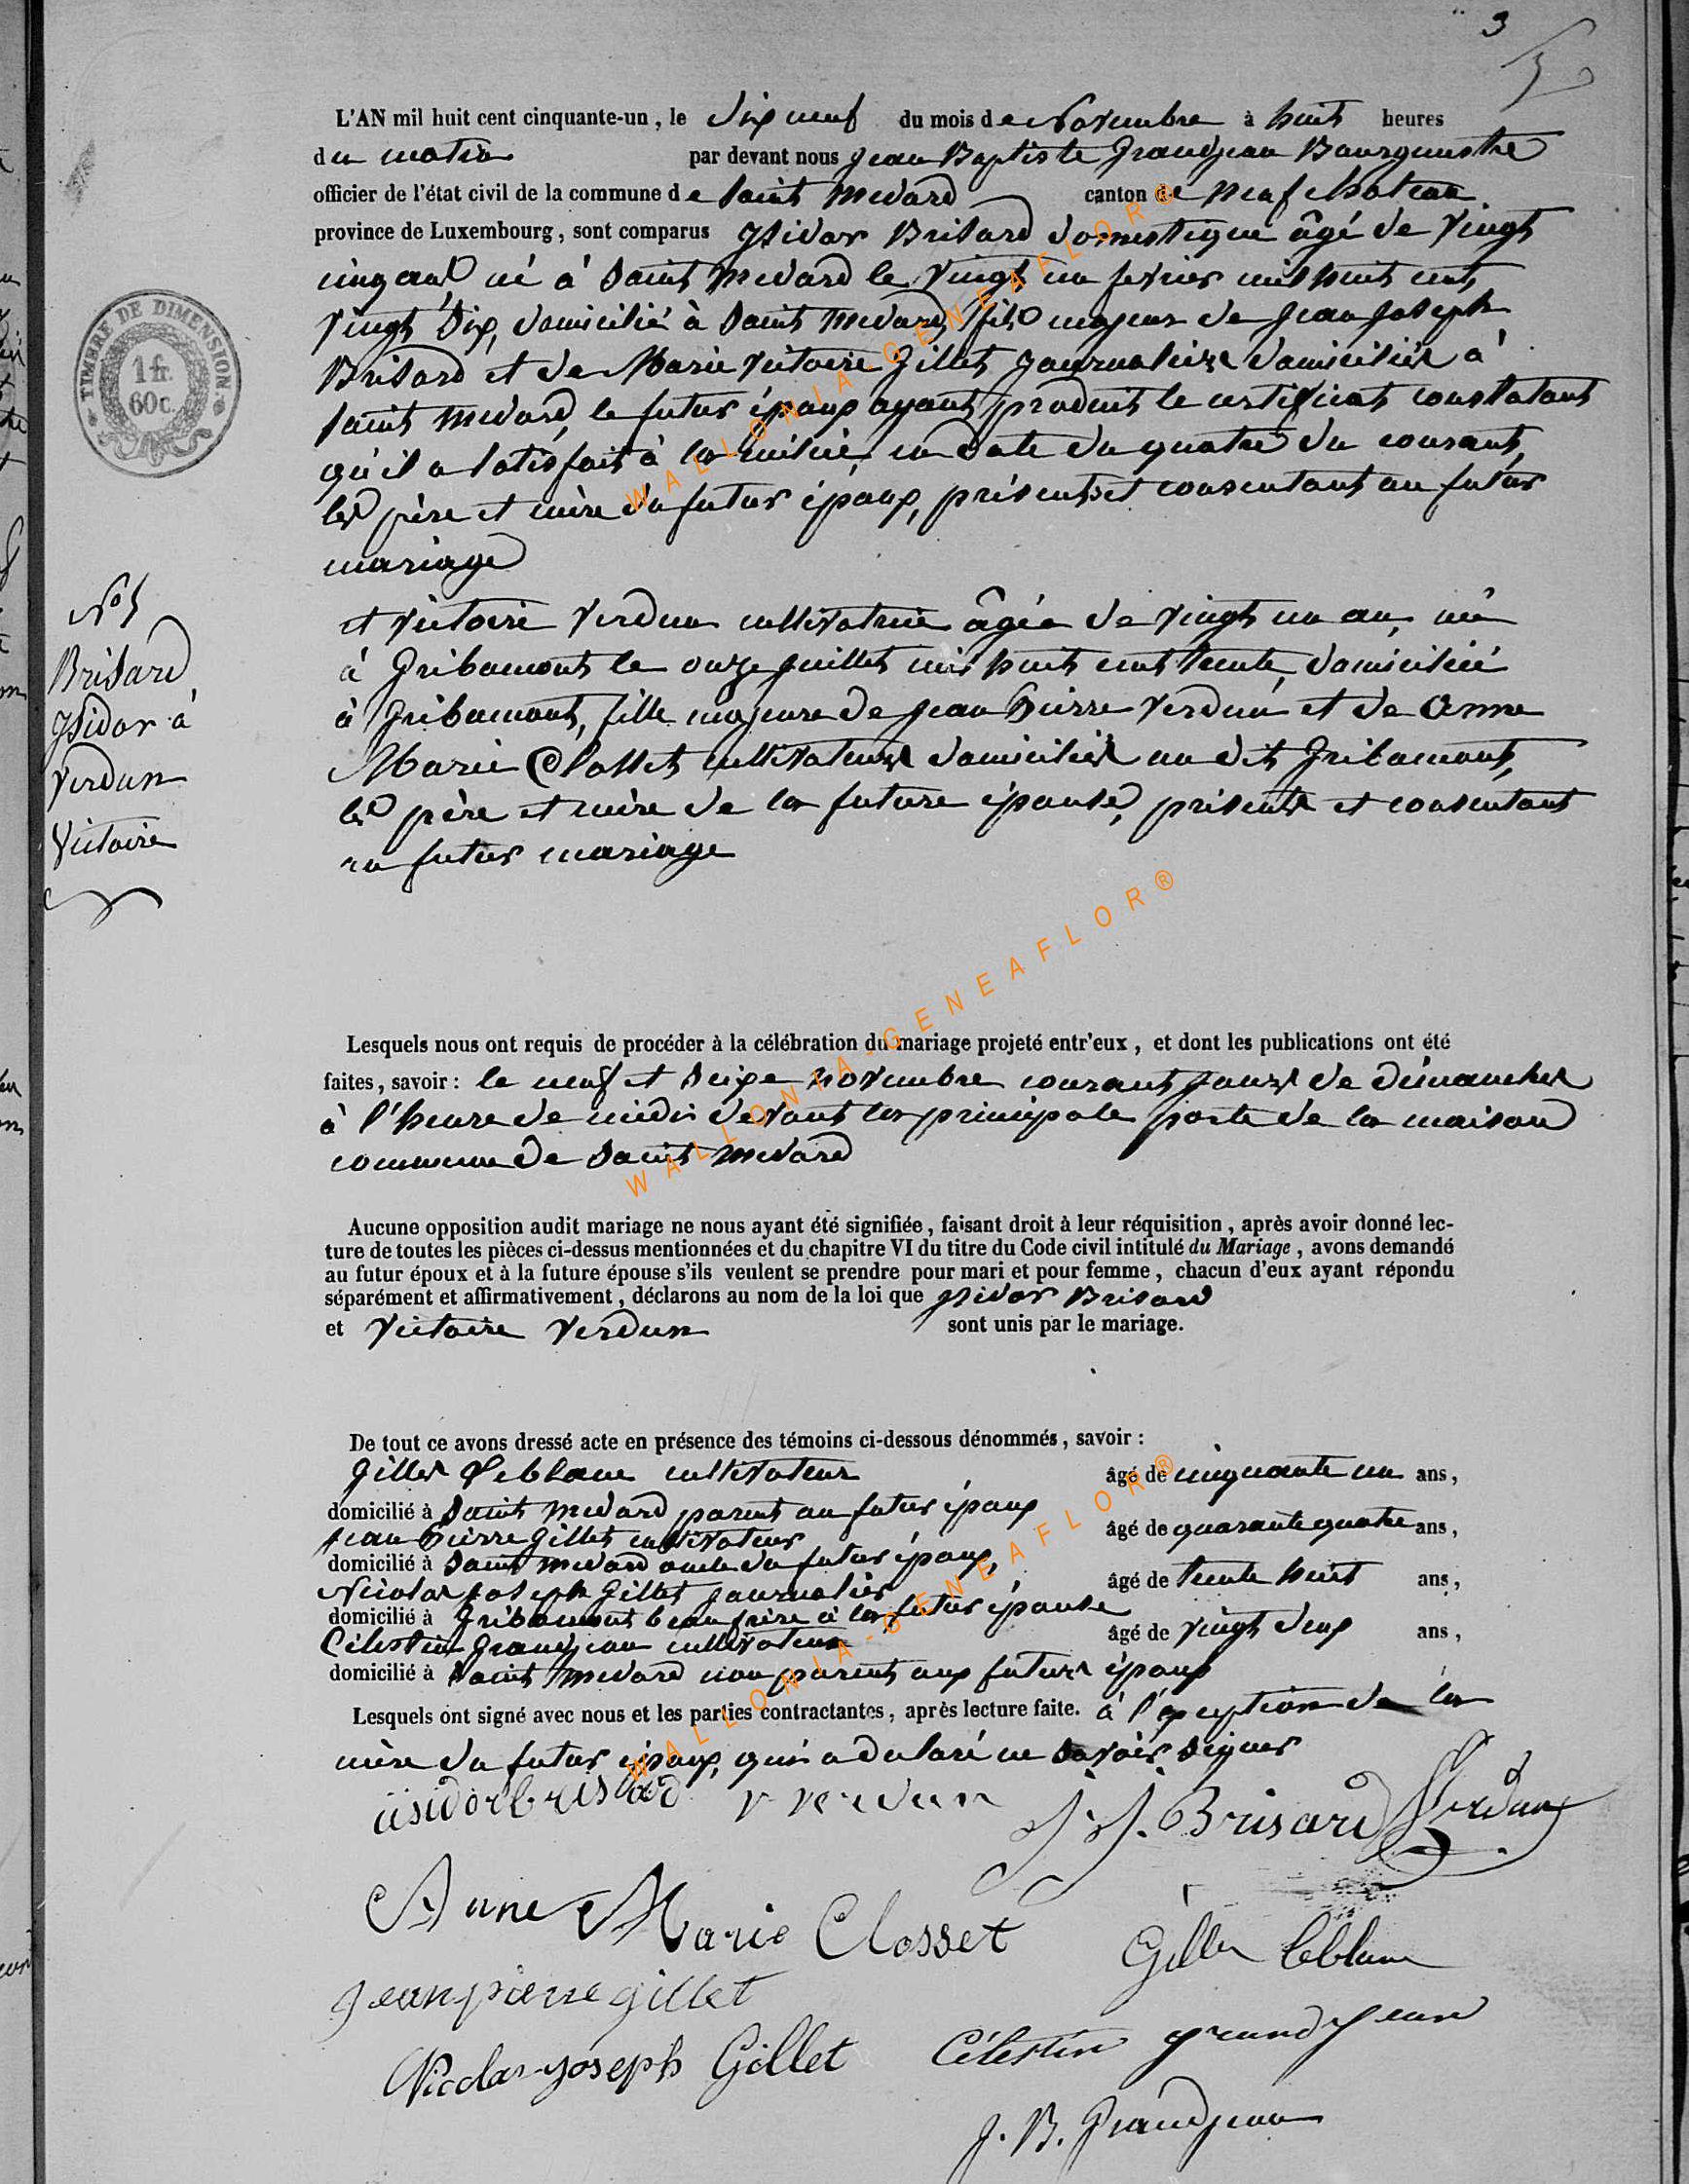 3
TIMBRE DE DIMENSION
1 fr.
60 c.
L'AN mil huit cent cinquante-un, le dix neuf du mois de Novembre à huit heures
du matin par devant nous Jean Baptiste Grandjean Bourgmestre
officier de l'état civil de la commune de Saint Medard canton de Neufchateau
province de Luxembourg, sont comparus Isidor Brisard domestique âgé de vingt
cinq ans né à Saint Medard le vingt un fevrier mil huit cent
vingt six, domicilié à Saint Medard, fils majeur de Jean Joseph
Brisard et de Marie Victoire Gillet journaliers domiciliés à
Saint Medard, le futur époux ayant produit le certificat constatant
qu'il a satisfait à la milice, en date du quatre du courant,
les père et mère du futur époux, présents et consentant au futur
mariage
No 5
Brisard
Isidor à
Verdun
Victoire
et Victoire Verdun cultivatrice âgée de vingt un an, née
à Gribamont le onze juillet mil huit cent trente, domiciliée
à Gribamont, fille majeure de Jean Pierre Verdun et de Anne
Marie Closset cultivateurs domiciliés au dit Gribamont,
les père et mère de la future épouse, présents et consentant
au futur mariage
Lesquels nous ont requis de procéder à la célébration du mariage projeté entr'eux, et dont les publications ont été
faites, savoir : le neuf et seize novembre courant jours de dimanches
à l'heure de midi devant la principale porte de la maison
commune de Saint Medard
Aucune opposition audit mariage ne nous ayant été signifiée, faisant droit à leur réquisition, après avoir donné lec-
ture de toutes les pièces ci-dessus mentionnées et du chapitre VI du titre du Code civil intitulé du Mariage, avons demandé
au futur époux et à la future épouse s'ils veulent se prendre pour mari et pour femme, chacun d'eux ayant répondu
séparément et affirmativement, déclarons au nom de la loi que Isidor Brisard
et Victoire Verdun sont unis par le mariage.
De tout ce avons dressé acte en présence des témoins ci-dessous dénommés, savoir :
Gilles Leblanc cultivateur âgé de cinquante un ans,
domicilié à Saint Medard parent au futur époux
Jean Pierre Gillet cultivateur âgé de quarante quatre ans,
domicilié à Saint Medard oncle du futur époux,
Nicolas Joseph Gillet journalier âgé de trente huit ans,
domicilié à Gribamont beau frère à la future épouse
Célestin Grandjean cultivateur âgé de vingt deux ans,
domicilié à Saint Medard non parent aux futurs époux
Lesquels ont signé avec nous et les parties contractantes, après lecture faite. à l'exception de la
mère du futur époux, qui a declaré ne savoir signer
isidor brisard v verdun J. J. Brisard Verdun
Anne Marie Closset Gilles leblanc
jean pierre gillet
Nicolas joseph Gillet Célestin grandjean
J. B. Grandjean
WALLONIA-GENEAFLOR®
WALLONIA-GENEAFLOR®
WALLONIA-GENEAFLOR®